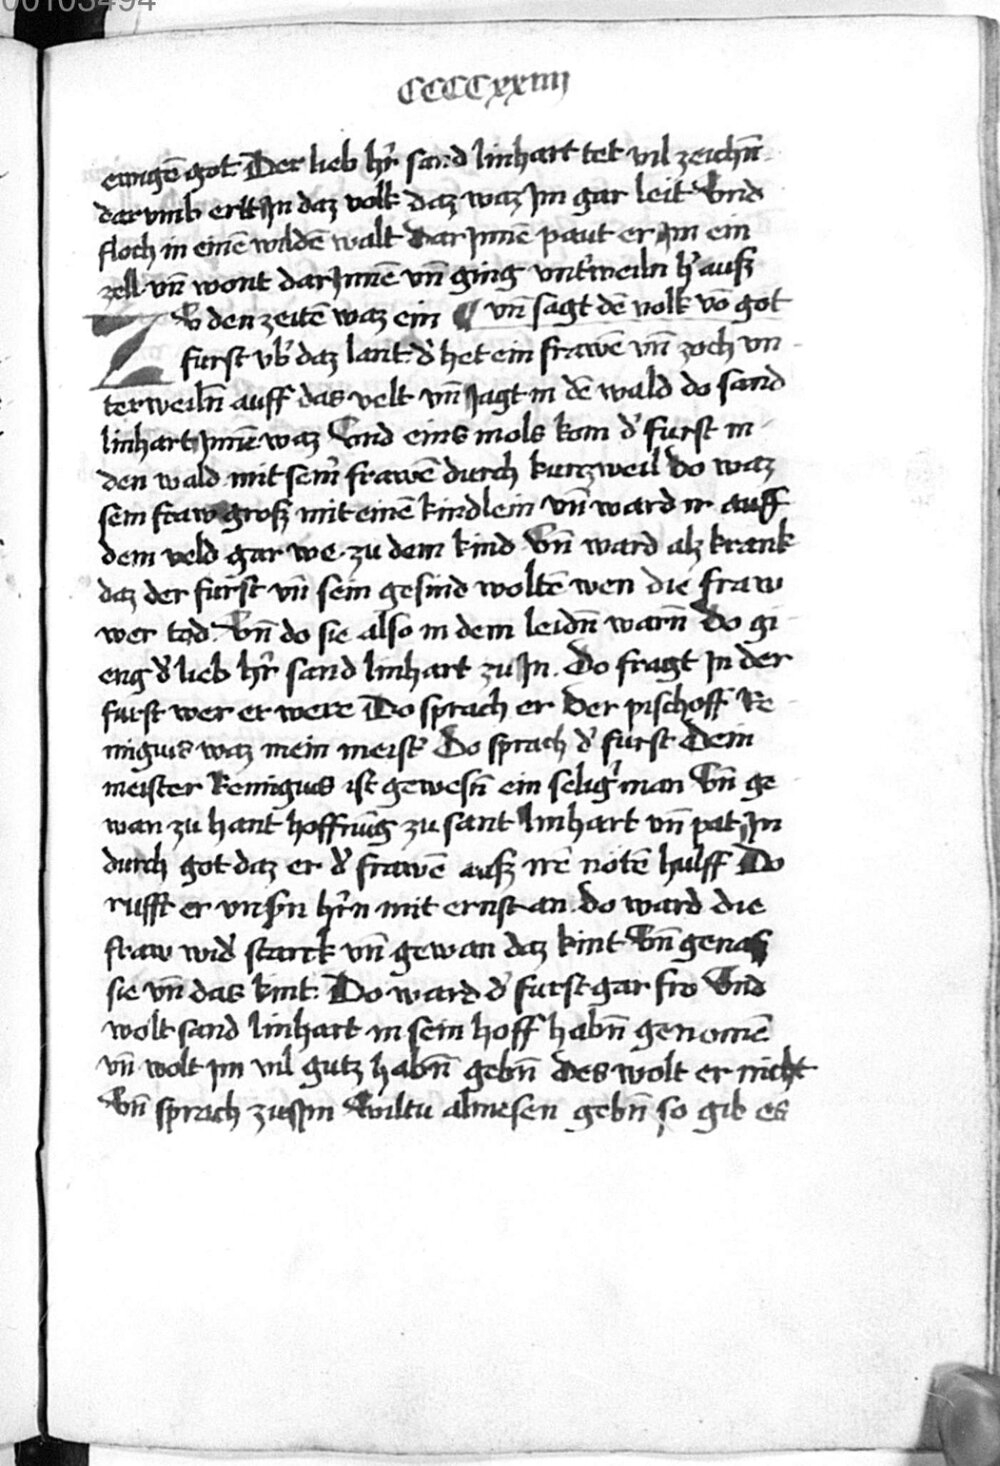 00103494
CCCCxxiiij
ewigē got Der lieb h̄r sand linhart tet vil zeichn̄
darvmb ert in daz volk daz waz Im gar leit Vnd
floch in einē wildē walt dar Innē paut er im ein
zell vn̄ wont dar Innē vn̄ ging vnt'weiln h'auß
¶ vn̄ sagt dē volk vō got
Zv den zeitē waz ein
furst vb' daz lant d' het ein frawē vn̄ zoch vn
terweiln̄ auff das velt vn̄ Jagt in dē wald do sand
linhart Innē waz Vnd eins mols kom d' furst in
den wald mit sein' frawē durch kurzweil do waz
sein fraw groß mit einē kindlein vn̄ ward ir auff
dem veld gar we zu dem kind Vn̄ ward alz krank
daz der furst vn̄ sein gesind woltē wen die fraw
wer tod. Vn̄ do sie also in dem leidn̄ warn̄ Do gi
eng d' lieb h̄r sand linhart zu In. Do fragt In der
furst wer er were Do sprach er Der pischoff Re
migius waz mein meist' Do sprach d' furst Dein
meister Remigius ist gewesn̄ ein selig' man Vn̄ ge
wan zu hant hoffnūg zu sant linhart vn̄ pat In
durch got daz er d' frawē auß irē nötē hulff Do
rufft er vnsn̄ h̄rn mit ernst an. do ward die
fraw wid' starck vn̄ gewan daz kint Vn̄ genas
sie vn̄ das kint. Do ward d' furst gar fro Vnd
wolt sand linhart in sein hoff habn̄ genomē
vn̄ wolt im vil gutz habn̄ gebn̄ Des wolt er nicht
Vn̄ sprach zu Im Wiltu almesen gebn̄ so gib es